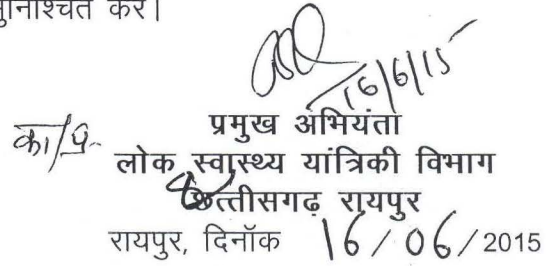 सुनिश्चित करें।
16/6/15
प्रमुख अभियंता
का/प्र- लोक स्वास्थ्य यांत्रिकी विभाग
छत्तीसगढ़ रायपुर
रायपुर, दिनॉक 16/06/2015